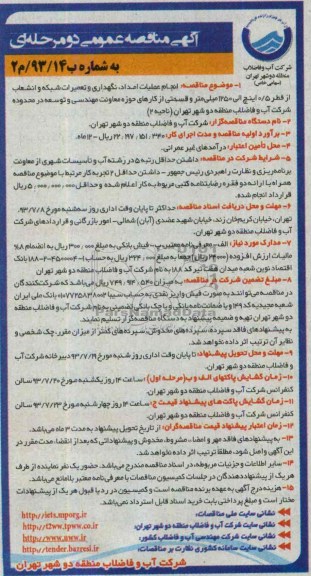 آگهی مناقصه عمومی دو مرحله‌ای
به شماره ب۹۳/۱۴/م۲
شرکت آب و فاضلاب
منطقه دو شهر تهران
(سهامی خاص)
۱- موضوع مناقصه: انجام عملیات امداد، نگهداری و تعمیرات شبکه و انشعاب
از قطر ۰/۵ اینچ الی ۱۲۵۰ میلی‌متر و قسمتی از کارهای حوزه معاونت مهندسی و توسعه در محدوده
شرکت آب و فاضلاب منطقه دو شهر تهران (ناحیه ۲)
۲- نام دستگاه مناقصه‌گزار: شرکت آب و فاضلاب منطقه دو شهر تهران.
۳- برآورد اولیه مناقصه و مدت اجرای کار: ریال - ۱۲ ماه.
۴- محل تأمین اعتبار: درآمدهای غیر عمرانی.
۵- شرایط شرکت در مناقصه: داشتن حداقل رتبه ۵ در رشته آب و تأسیسات شهری از معاونت
برنامه‌ریزی و نظارت راهبردی رئیس جمهور - داشتن حداقل ۲ تجربه کار مرتبط با موضوع مناقصه
همراه با ارائه دو فقره رضایتنامه کتبی مربوط به کار اعلام شده و حداقل ریال
قرارداد انجام شده.
۶- مهلت و محل دریافت اسناد مناقصه: حداکثر تا پایان وقت اداری روز سه‌شنبه مورخ ۹۳/۷/۸
تهران: خیابان کریم‌خان زند، خیابان شهید عضدی (آبان) شمالی - امور بازرگانی و قراردادهای شرکت
آب و فاضلاب منطقه دو شهر تهران.
۷- مدارک مورد نیاز: الف- معرفی‌نامه معتبر ب- فیش بانکی به مبلغ ۳۰۰,۰۰۰ ریال به انضمام ۸٪
مالیات ارزش افزوده (۲۴,۰۰۰ ریال) جمعاً به مبلغ ۳۲۴,۰۰۰ ریال به حساب بانک
اقتصاد نوین شعبه میدان هفت تیر کد ۱۸۸ به نام شرکت آب و فاضلاب منطقه دو شهر تهران.
۸- مبلغ تضمین شرکت در مناقصه: به میزان ریال می‌باشد که شرکت‌کنندگان
در مناقصه می‌توانند به صورت فیش واریز نقدی به حساب سیبا بانک ملی ایران
شعبه مجیدیه کد و یا ضمانت‌نامه بانکی و یا چک بانکی تضمینی به نفع شرکت آب و فاضلاب منطقه
دو شهر تهران تهیه و ضمیمه پیشنهاد به دستگاه مناقصه‌گزار تسلیم نمایند.
به پیشنهادهای فاقد سپرده، سپرده‌های مخدوش، سپرده‌های کمتر از میزان مقرر، چک شخصی و
نظایر آن ترتیب اثر داده نخواهد شد.
۹- مهلت و محل تحویل پیشنهاد: تا پایان وقت اداری روز شنبه مورخ ۹۳/۷/۱۹ دبیرخانه شرکت آب
و فاضلاب منطقه دو شهر تهران.
۱۰- زمان گشایش پاکتهای الف و ب (مرحله اول): ساعت ۱۴ روز یکشنبه مورخ ۹۳/۷/۲۰ سالن
کنفرانس شرکت آب و فاضلاب منطقه دو شهر تهران.
۱۱- زمان گشایش پاکت‌های پیشنهاد قیمت ج: ساعت ۱۴ روز چهارشنبه مورخ ۹۳/۷/۲۳ سالن
کنفرانس شرکت آب و فاضلاب منطقه دو شهر تهران.
۱۲- زمان اعتبار پیشنهاد قیمت مناقصه‌گران: از تاریخ تحویل پیشنهاد به مدت ۳ ماه می‌باشد.
۱۳- به پیشنهادهای فاقد مهر و امضاء، مشروط، مخدوش و پیشنهاداتی که بعد از انقضاء مدت مقرر در
این آگهی واصل شود، مطلقاً ترتیب اثر داده نخواهد شد.
۱۴- سایر اطلاعات و جزئیات مربوطه، در اسناد مناقصه مندرج می‌باشد. حضور یک نفر نماینده از طرف
هر یک از پیشنهاددهندگان در جلسات کمیسیون مناقصات با معرفی‌نامه معتبر بلامانع می‌باشد.
۱۵- هزینه درج آگهی به عهده برنده مناقصه است و کمیسیون در رد یا قبول هر یک از پیشنهادات
مختار است و مبلغ پرداختی بابت خرید اسناد قابل استرداد نمی‌باشد.
نشانی سایت ملی مناقصات: http://iets.mporg.ir
نشانی سایت شرکت آب و فاضلاب منطقه دو شهر تهران: http://t2ww.tpww.co.ir
نشانی سایت شرکت مهندسی آب و فاضلاب کشور: http://www.nww.ir
نشانی سایت سامانه کشوری نظارت بر مناقصات: http://tender.bazresi.ir
شرکت آب و فاضلاب منطقه دو شهر تهران